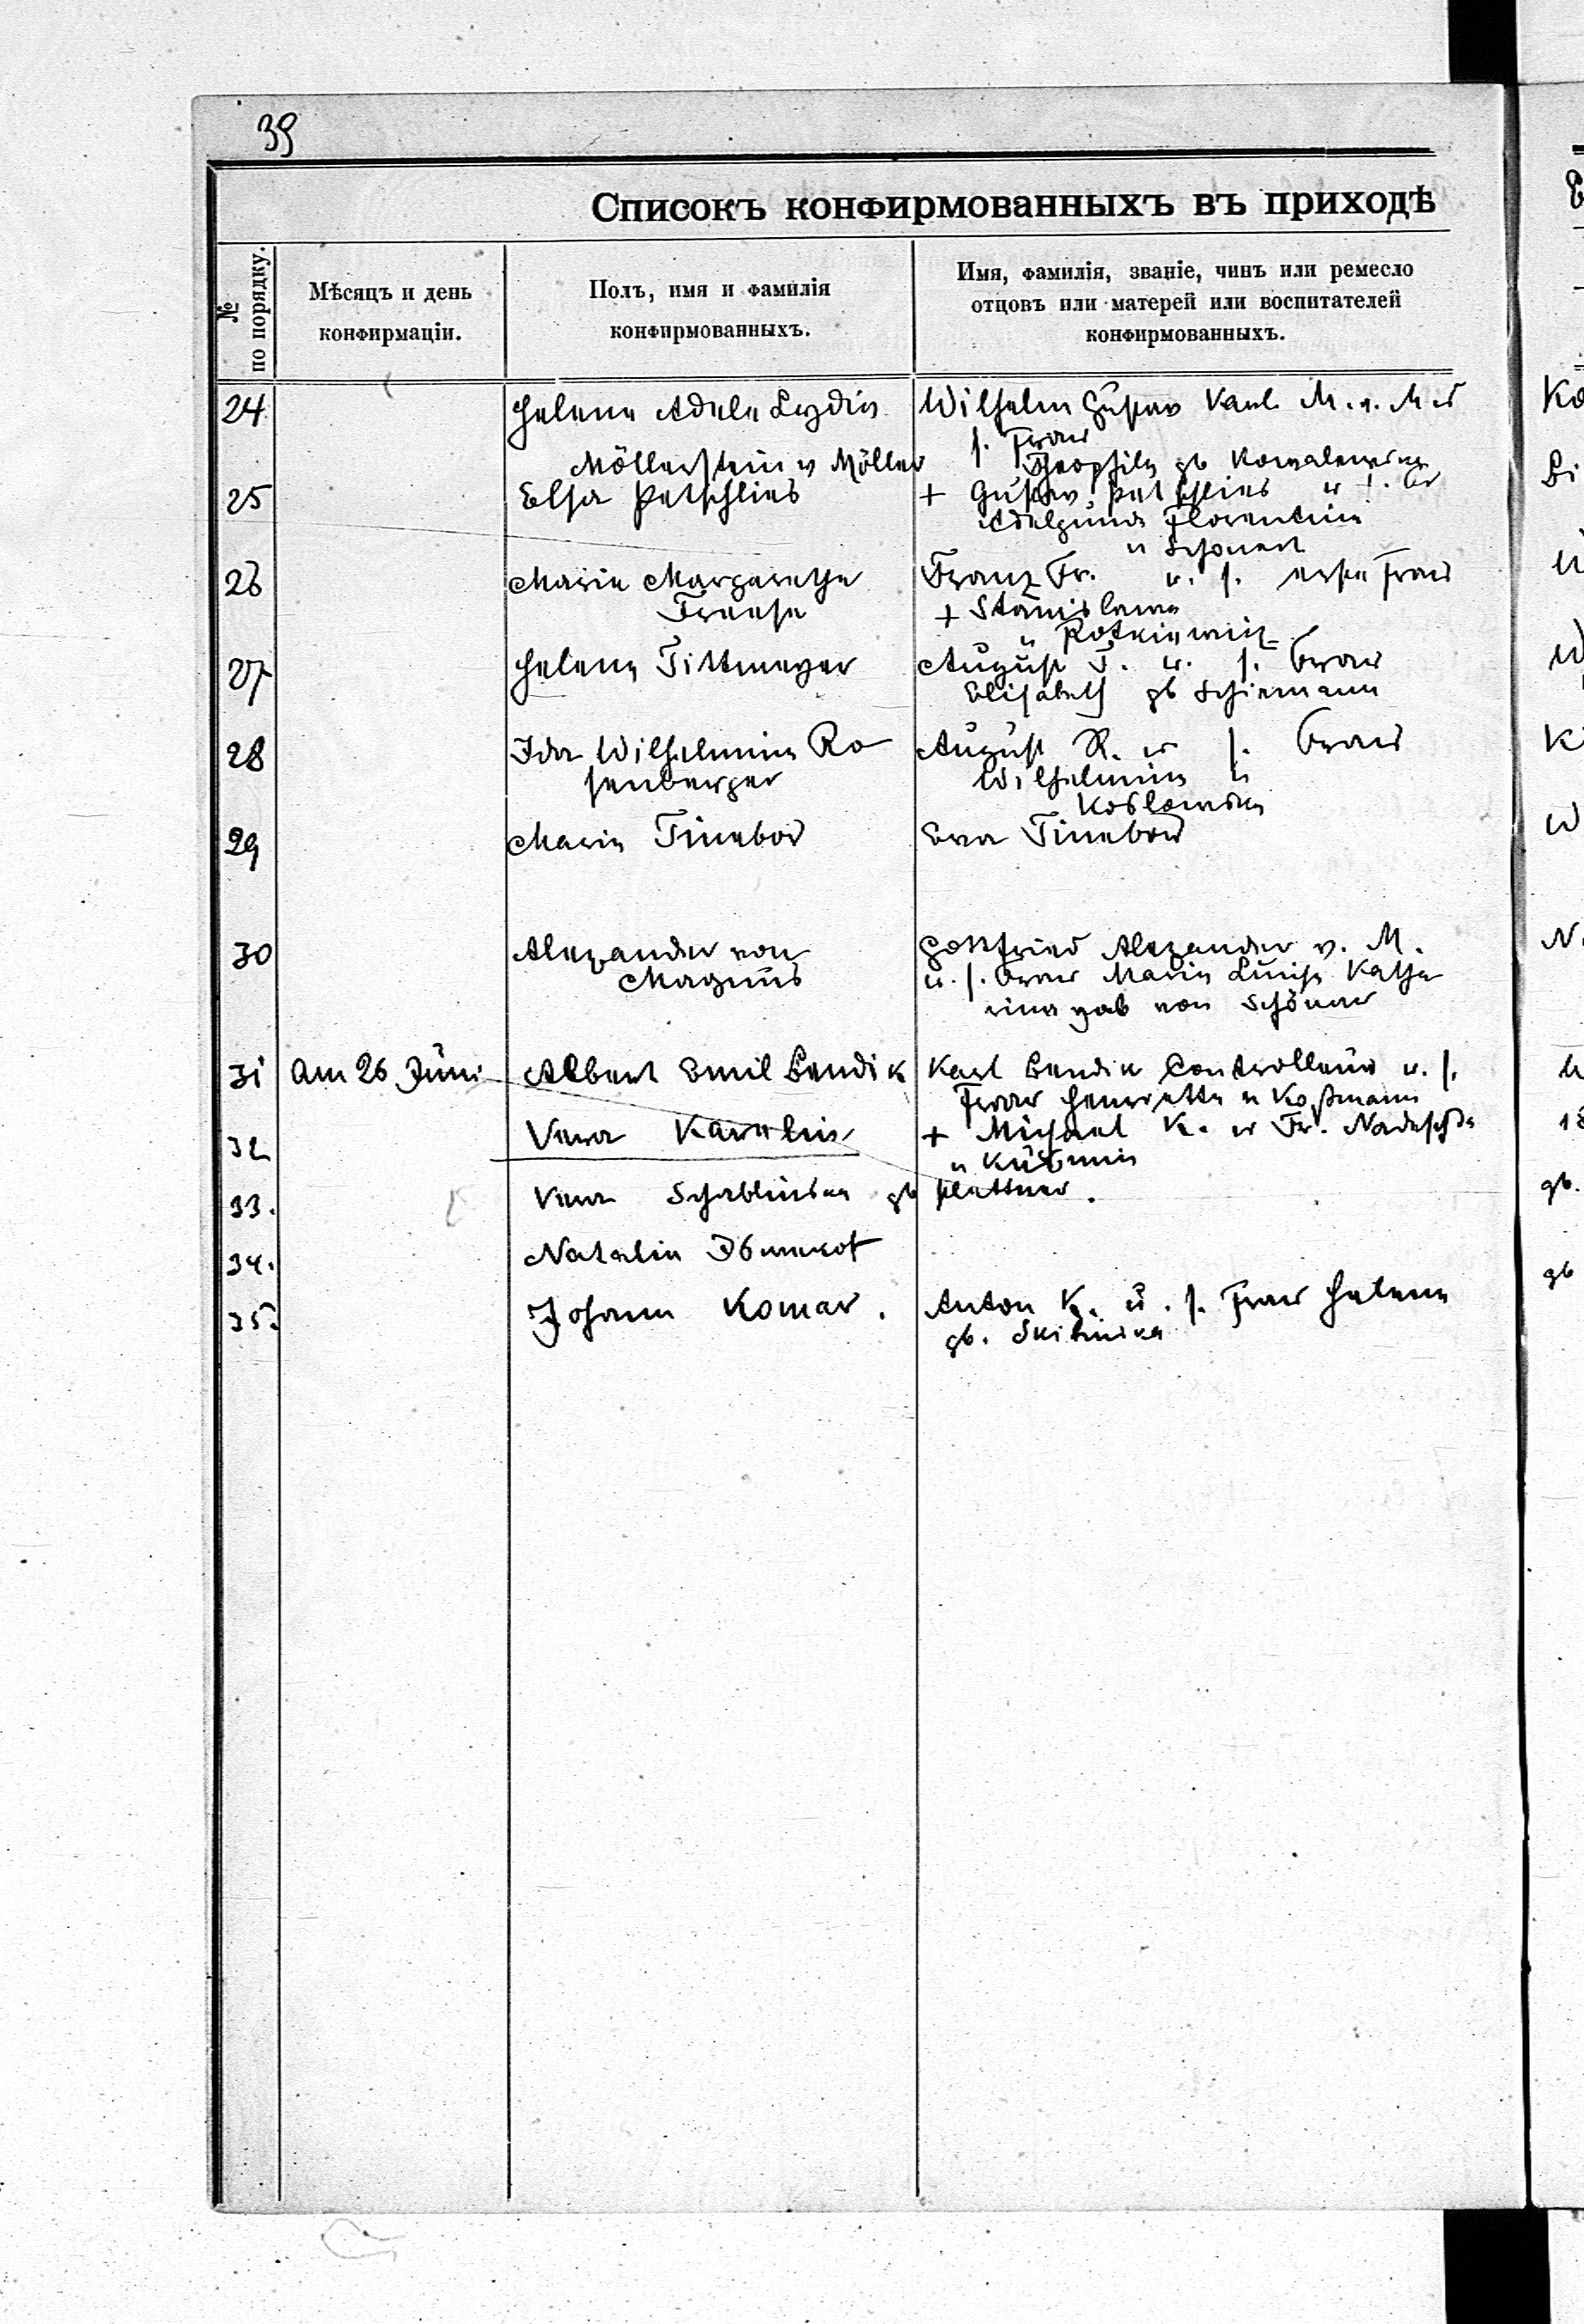 39
Списокъ конфирмованныхъ въ приходѣ
№ по порядку.
Мѣсяцъ и день
конфирмаціи.
Полъ, имя и фамилія
конфирмованныхъ.
Имя, фамилія, званіе, чинъ или ремесло
отцовъ или матерей или воспитателей
конфирмованныхъ.
24 Helene Adele Lydia Wilhelm Gustav Karl M. v. M u
s. Frau
Möllerstein v Möller Theophila gb Kowalewska
25 Elsa Petschlies + Gustav Petschlies u s.
Adelgunde Florentine
Schonert
26 Marie Margarethe Franz Fr. u. s. erste Frau
Freese + Stanislawa
Rotkiewicz
27 Helene Tittmeyer August T. u. s. Frau
Elisabeth gb Schiemann
28 Ida Wilhelmine Ro August R. u s. Frau
senberger Wilhelmine
Koslowska
29 Marie Tinebor Eva Tinebor
30 Alexander von Gottfried Alexander v. M.
Magnus u. s. Frau Marie Luise Kathe
rina geb von Schönar
31 Am 26 Juni Albert Emil Bendik Karl Bendik Controlleur u. s.
Frau Henriette Koßmann
32 Vera Karelin + Michael K. u Fr. Nadeschda
Kusmin
33. Vera Schablinska gb Plettner.
34. Natalie
35. Johann Komar. Anton K. u. s. Frau Helene
gb.